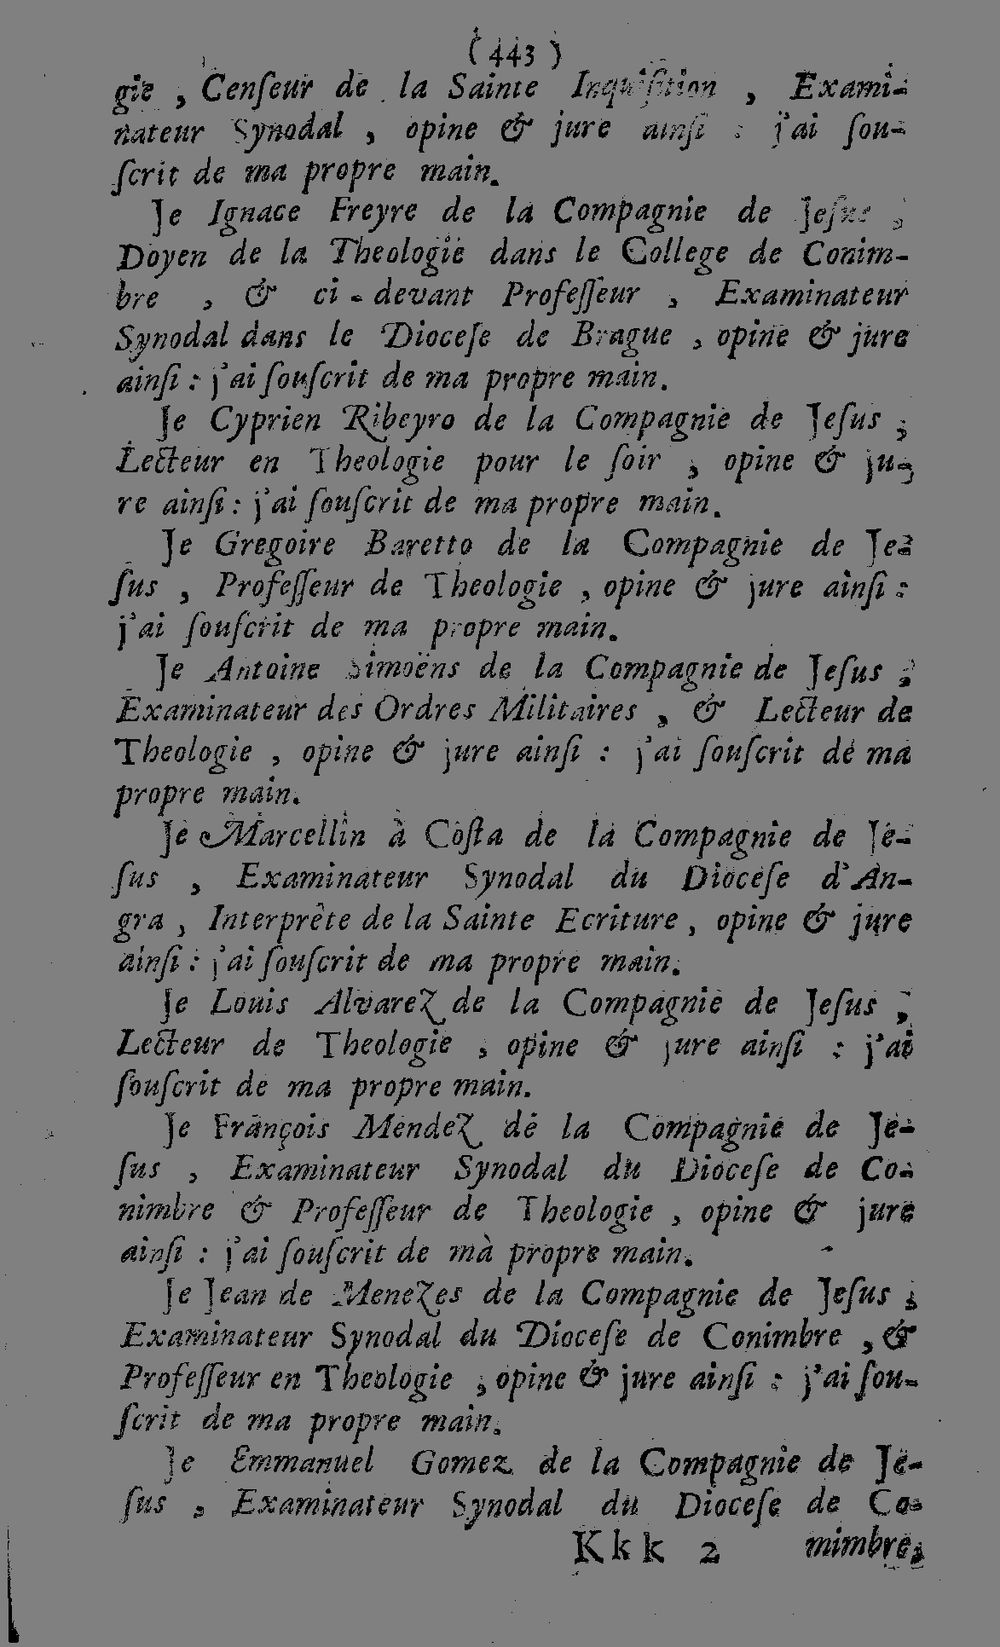 ( 443 )
gie , Cenſeur de la Sainte Inquiſition , Exami-
nateur Synodal , opine & jure ainſi : j'ai ſou-
ſcrit de ma propre main.
Je Ignace Freyre de la Compagnie de Jeſus ,
Doyen de la Theologie dans le College de Conim-
bre , & ci-devant Profeſſeur , Examinateur
Synodal dans le Dioceſe de Brague , opine & jure
ainſi : j'ai ſouſcrit de ma propre main.
Je Cyprien Ribeyro de la Compagnie de Jeſus ,
Lecteur en Theologie pour le ſoir , opine & ju-
re ainſi : j'ai ſouſcrit de ma propre main.
Je Gregoire Baretto de la Compagnie de Je-
ſus , Profeſſeur de Theologie , opine & jure ainſi :
j'ai ſouſcrit de ma propre main.
Je Antoine Simoëns de la Compagnie de Jeſus ,
Examinateur des Ordres Militaires , & Lecteur de
Theologie , opine & jure ainſi : j'ai ſouſcrit de ma
propre main.
Je Marcellin à Coſta de la Compagnie de Je-
ſus , Examinateur Synodal du Dioceſe d'An-
gra , Interprête de la Sainte Ecriture , opine & jure
ainſi : j'ai ſouſcrit de ma propre main.
Je Louis Alvarez de la Compagnie de Jeſus ,
Lecteur de Theologie , opine & jure ainſi : j'ai
ſouſcrit de ma propre main.
Je François Mendez de la Compagnie de Je-
ſus , Examinateur Synodal du Dioceſe de Co-
nimbre & Profeſſeur de Theologie , opine & jure
ainſi : j'ai ſouſcrit de ma propre main.
Je Jean de Menezes de la Compagnie de Jeſus ,
Examinateur Synodal du Dioceſe de Conimbre , &
Profeſſeur en Theologie , opine & jure ainſi : j'ai ſou-
ſcrit de ma propre main.
Je Emmanuel Gomez de la Compagnie de Je-
ſus , Examinateur Synodal du Dioceſe de Co-
Kkk 2 mimbre,